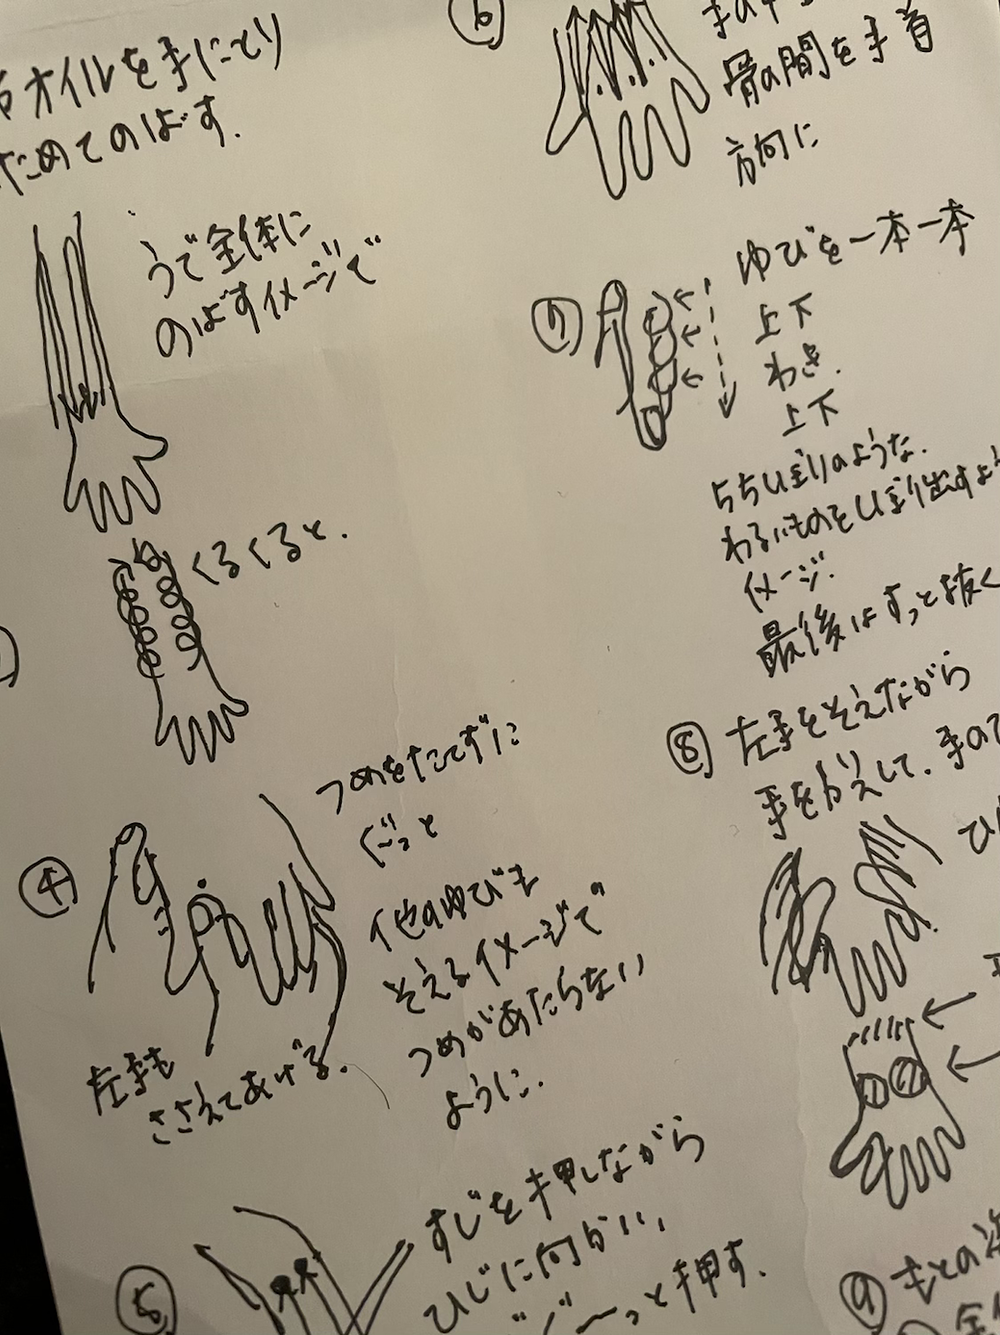 オイルを手にとり
ためてのばす.
うで全体に
のばすイメージで
くるくると.
④
つめをたてずに
ぐーっと
他のゆびも
そえるイメージで
つめがあたらない
ように.
左手も
ささえてあげる.
⑤
すじを押しながら
ひじに向かい,
ぐーっと押す.
⑥
骨の間を手首
方向に
⑦
ゆびを一本一本
上下
わき.
上下
ちちしぼりのような.
わるいものをしぼり出すよ
イメージ.
最後はすっと抜く
⑧ 左手をそえながら
手をかえして.手の
⑨ もとの